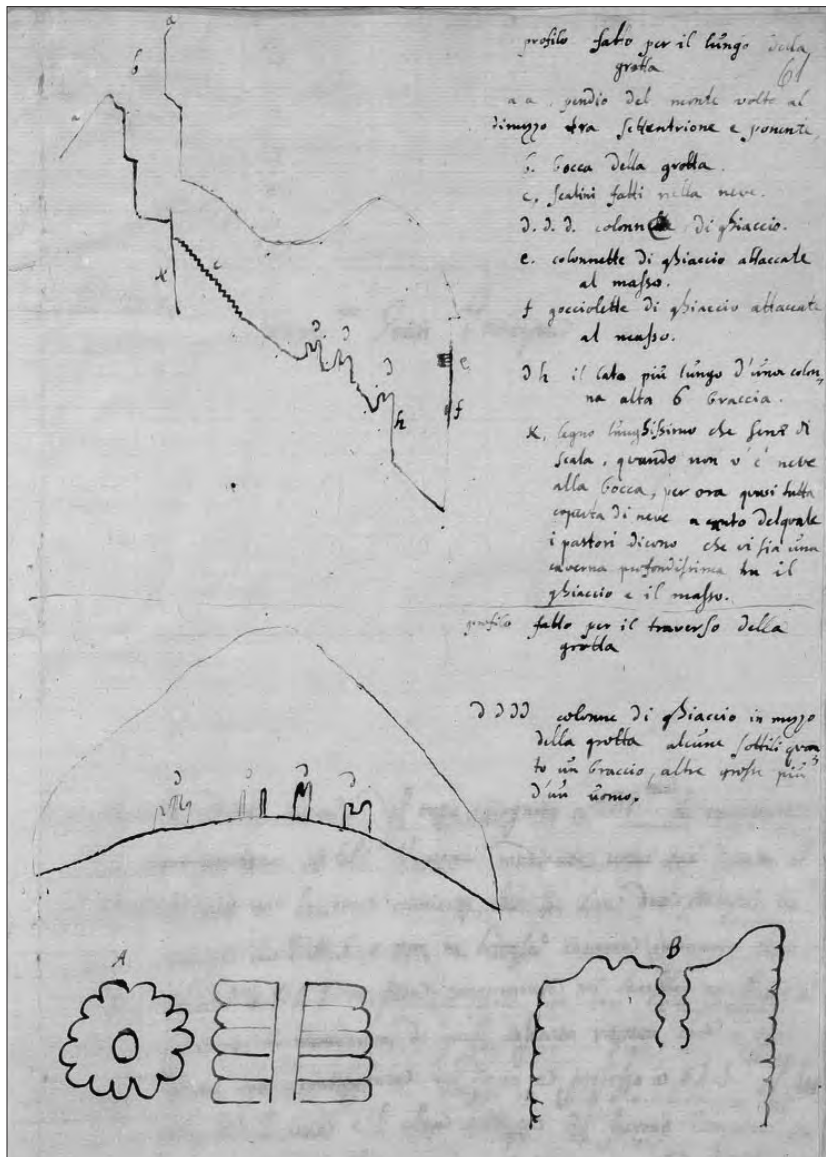 profilo fatto per il lungo della
grotta
61
a a. pendio del monte volto al
dimezzo tra settentrione e ponente,
b. bocca della grotta.
c. scalini fatti nella neve.
d. d. d. colonne di ghiaccio.
e. colonnette di ghiaccio attaccate
al masso.
f gocciolette di ghiaccio attaccate
al masso.
d h il lato più lungo d'una colon-
na alta 6 braccia.
k, legno lunghissimo che serve di
scala, quando non v'è neve
alla bocca, per ora quasi tutta
coperta di neve a canto del quale
i pastori dicono che vi sia una
caverna profondissima tra il
ghiaccio e il masso.
a
b
a
k
c
d d
d
e
h
f
profilo fatto per il traverso della
grotta
d d d d colonne di ghiaccio in mezzo
della grotta alcune sottili quan
to un braccio, altre grosse più
d'un uomo.
d d d d
A
B